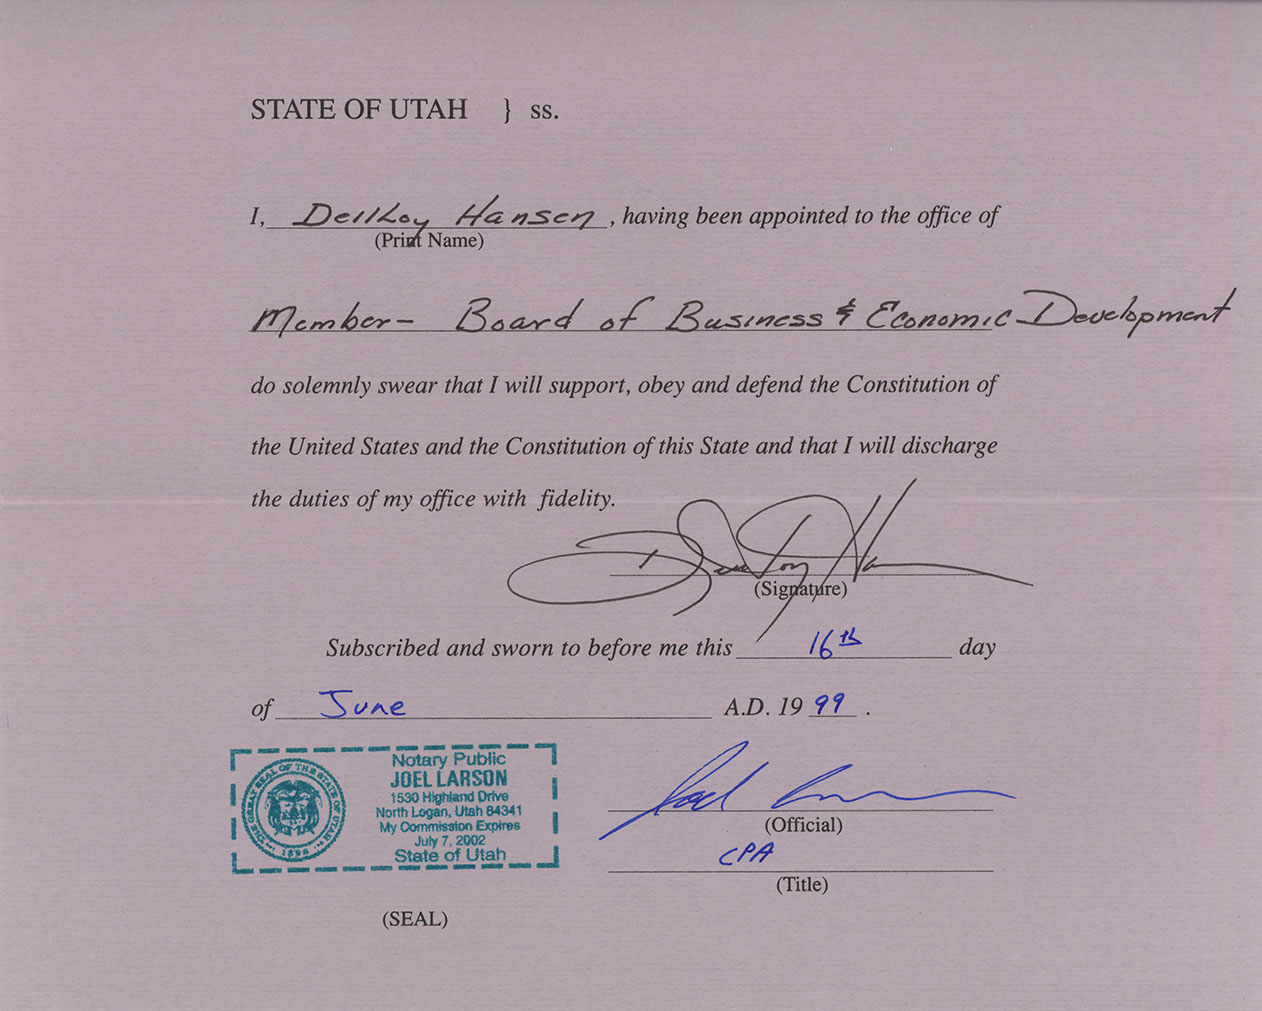 STATE OF UTAH } ss.
I, DellLoy Hansen, having been appointed to the office of
(Print Name)
Member- Board of Business & Economic Development
do solemnly swear that I will support, obey and defend the Constitution of
the United States and the Constitution of this State and that I will discharge
the duties of my office with fidelity.
(Signature)
Subscribed and sworn to before me this 16th day
of June A.D. 1999.
Notary Public
JOEL LARSON
1530 Highland Drive
North Logan, Utah 84341
My Commission Expires
July 7, 2002
State of Utah
THE GREAT SEAL OF THE STATE OF UTAH
1896
Joel Larson
(Official)
CPA
(Title)
(SEAL)